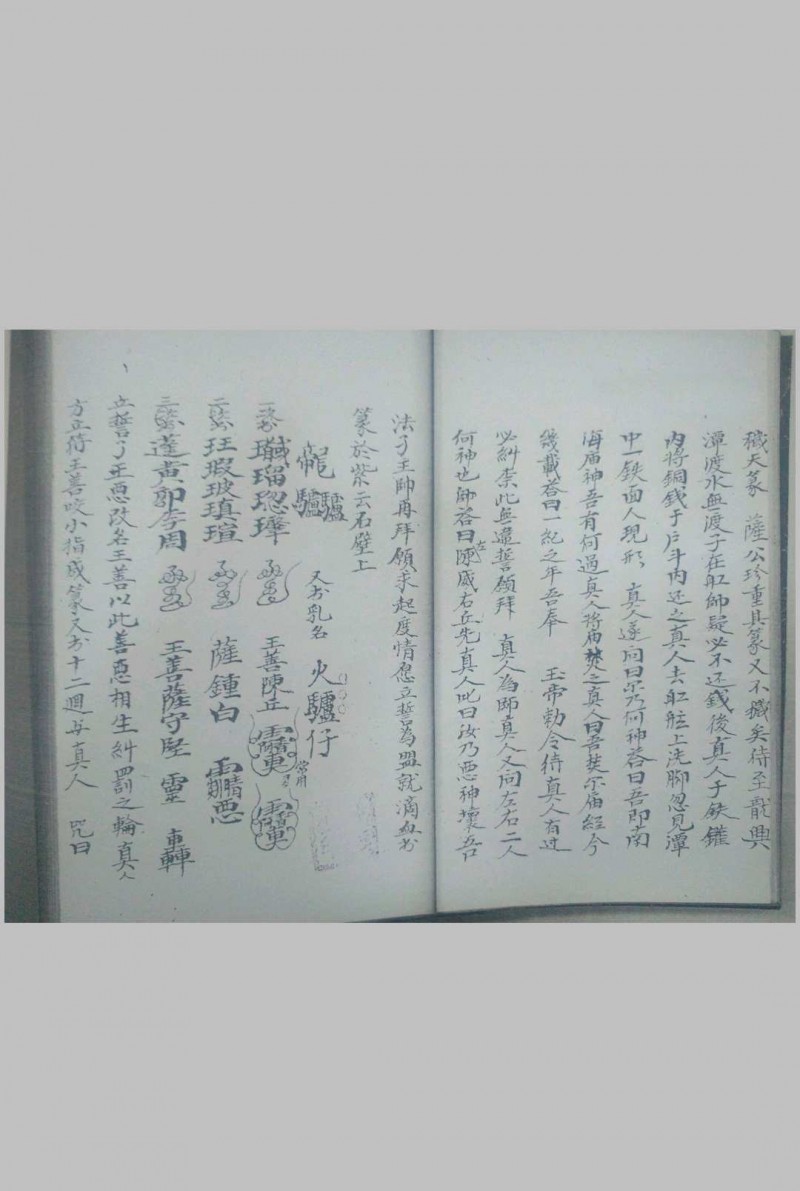 穢夫篆　薩公珍重其篆又不穢矣待至龍興
潭渡水無渡子在舡師疑必不还錢後真人于鉄鑵
内將銅錢于戶斗内还之真人去舡舷上洗脚忽見潭
中一鉄面人現形　真人遂问曰尔乃何神答曰吾即南
海庙神吾有何過真人將庙焚之真人曰吾焚尔庙経今
幾載答曰一紀之年吾奉　玉帝勅令待真人有过
必糾奈此無違誓願拜　真人為師真人又问左右二人
何神也師答曰左陳戚右丘先真人叱曰汝乃悪神壞吾
法了王帥再拜願求起度情愿立誓為盟就滴血書
篆於紫云石壁上
又書乳名　火驢仔
王善陳丘
常用
玨瑕玻瑱瑄　薩鍾白
蓬黄郭李周　王善薩守堅　霊　轟
立誓了王悪改名王善以此善悪相生糾罰之輪真人
方立待王善咬小指成篆又書十二週与真人　咒曰